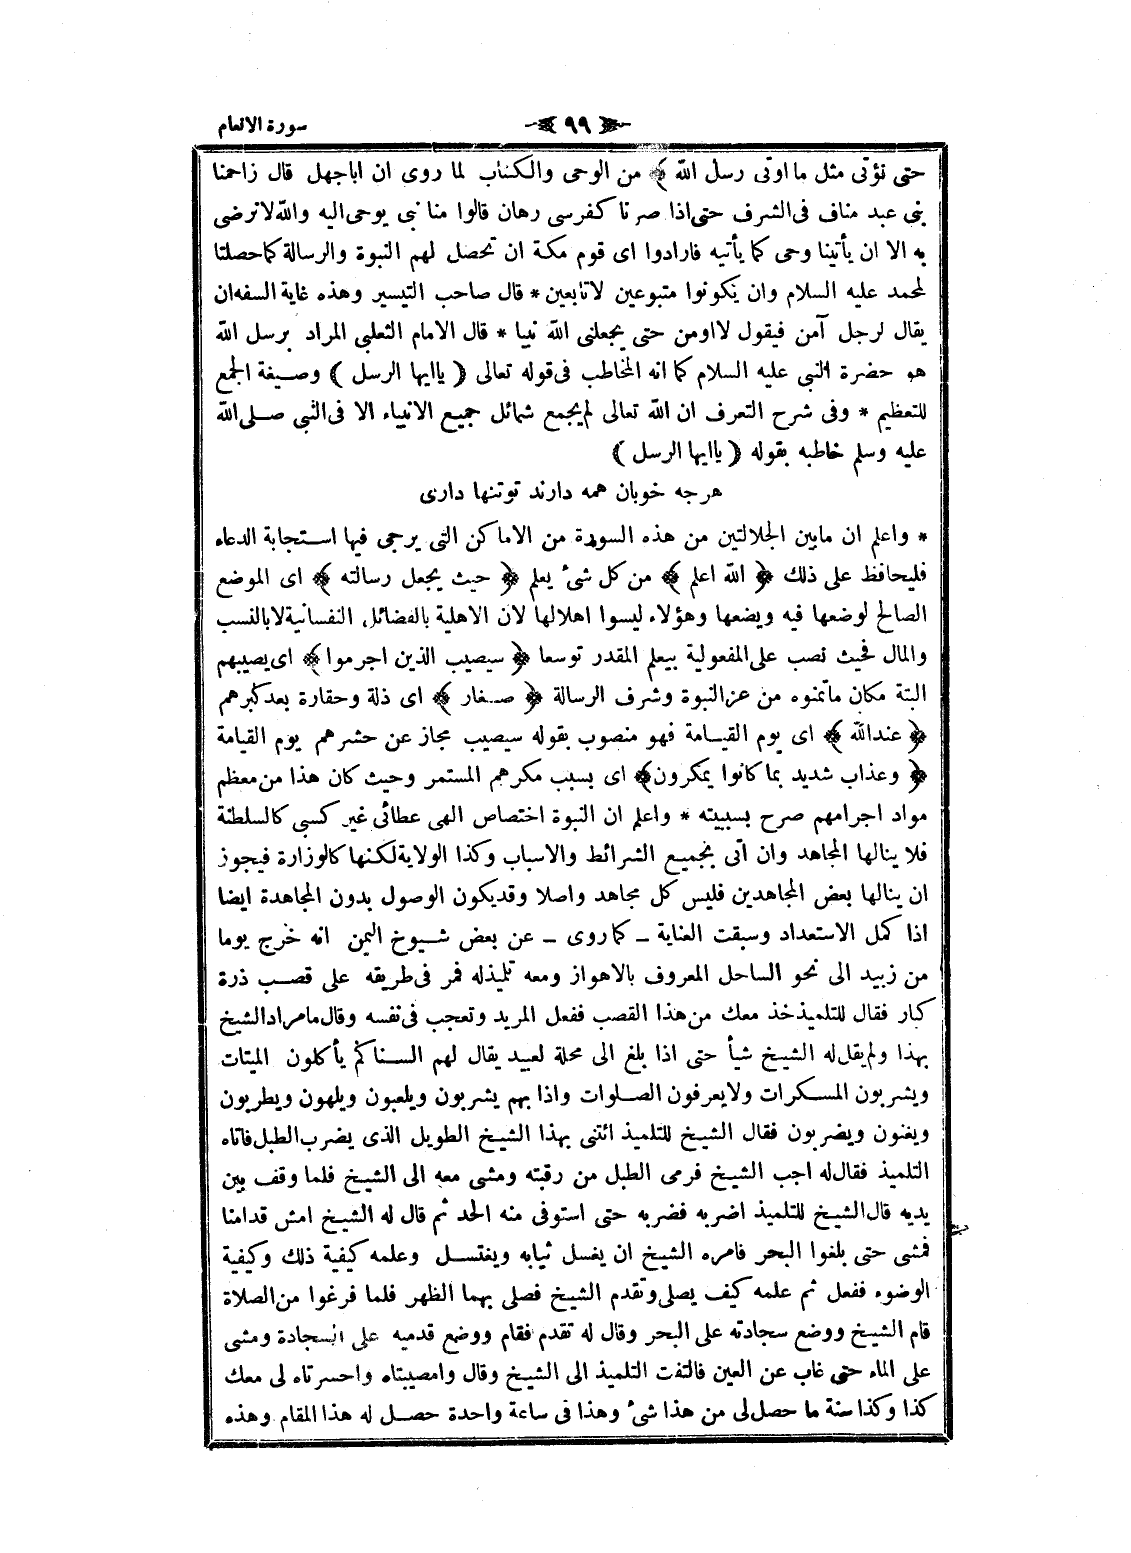 سورة الانعام
﴿ ٩٩ ﴾
حتى نؤتى مثل ما اوتى رسل الله ﴾ من الوحى والكتاب لما روى ان اباجهل قال زاحمنا
بنى عبد مناف فى الشرف حتى اذا صرنا كفرسى رهان قالوا منا نبى يوحى اليه والله لا نرضى
به الا ان يأتينا وحى كما يأتيه فارادوا اى قوم مكة ان تحصل لهم النبوة والرسالة كما حصلتا
لمحمد عليه السلام وان يكونوا متبوعين لا تابعين * قال صاحب التيسير وهذه غاية السفه ان
يقال لرجل آمن فيقول لا اومن حتى يجعلنى الله نبيا * قال الامام الثعلبى المراد برسل الله
هو حضرة النبى عليه السلام كما انه المخاطب فى قوله تعالى ( ياايها الرسل ) وصيغة الجمع
للتعظيم * وفى شرح التعرف ان الله تعالى لم يجمع شمائل جميع الانبياء الا فى النبى صلى الله
عليه وسلم خاطبه بقوله ( ياايها الرسل )
هرچه خوبان همه دارند تو تنها دارى
* واعلم ان مابين الجلالتين من هذه السورة من الاماكن التى يرجى فيها استجابة الدعاء
فليحافظ على ذلك ﴿ الله اعلم ﴾ من كل شئ يعلم ﴿ حيث يجعل رسالته ﴾ اى الموضع
الصالح لوضعها فيه ويضعها وهؤلاء ليسوا اهلالها لان الاهلية بالفضائل النفسانية لا بالنسب
والمال فحيث نصب على المفعولية بيعلم المقدر توسعا ﴿ سيصيب الذين اجرموا ﴾ اى يصيبهم
البتة مكان ماتمنوه من عز النبوة وشرف الرسالة ﴿ صغار ﴾ اى ذلة وحقارة بعد كبرهم
﴿ عندالله ﴾ اى يوم القيامة فهو منصوب بقوله سيصيب مجاز عن حشرهم يوم القيامة
﴿ وعذاب شديد بما كانوا يمكرون ﴾ اى بسبب مكرهم المستمر وحيث كان هذا من معظم
مواد اجرامهم صرح بسببيته * واعلم ان النبوة اختصاص الهى عطائى غير كسبى كالسلطنة
فلا ينالها المجاهد وان اتى بجميع الشرائط والاسباب وكذا الولاية لكنها كالوزارة فيجوز
ان ينالها بعض المجاهدين فليس كل مجاهد واصلا وقد يكون الوصول بدون المجاهدة ايضا
اذا كمل الاستعداد وسبقت العناية ـ كما روى ـ عن بعض شيوخ اليمن انه خرج يوما
من زبيد الى نحو الساحل المعروف بالاهواز ومعه تلميذله فمر فى طريقه على قصب ذرة
كبار فقال للتلميذ خذ معك من هذا القصب ففعل المريد وتعجب فى نفسه وقال مامراد الشيخ
بهذا ولم يقل له الشيخ شيأ حتى اذا بلغ الى محلة لعبيد يقال لهم السناكم يأكلون الميتات
ويشربون المسكرات ولا يعرفون الصلوات واذا بهم يشربون ويلعبون ويلهون ويطربون
ويغنون ويضربون فقال الشيخ للتلميذ ائتنى بهذا الشيخ الطويل الذى يضرب الطبل فاتاه
التلميذ فقال له اجب الشيخ فرمى الطبل من رقبته ومشى معه الى الشيخ فلما وقف بين
يديه قال الشيخ للتلميذ اضربه فضربه حتى استوفى منه الحد ثم قال له الشيخ امش قدامنا
فمشى حتى بلغوا البحر فامره الشيخ ان يغسل ثيابه ويغتسل وعلمه كيفية ذلك وكيفية
الوضوء ففعل ثم علمه كيف يصلى وتقدم الشيخ فصلى بهما الظهر فلما فرغوا من الصلاة
قام الشيخ ووضع سجادته على البحر وقال له تقدم فقام ووضع قدميه على السجادة ومشى
على الماء حتى غاب عن العين فالتفت التلميذ الى الشيخ وقال وامصيبتاه واحسرتاه لى معك
كذا وكذا سنة ما حصل لى من هذا شئ وهذا فى ساعة واحدة حصل له هذا المقام وهذه